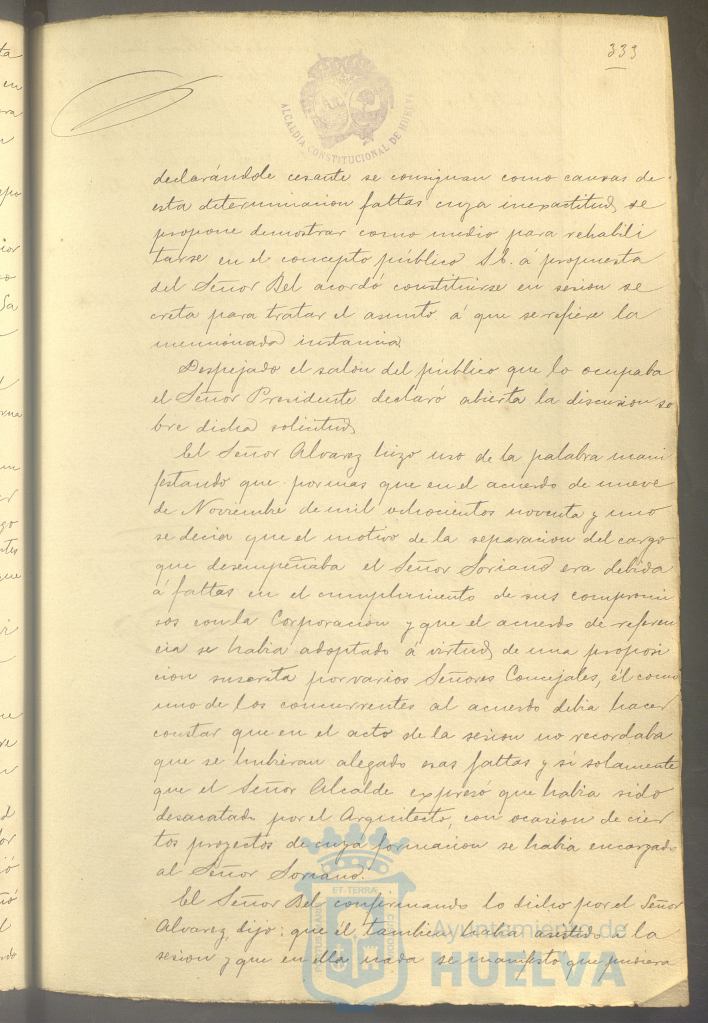 333
ALCALDIA CONSTITUCIONAL DE HUELVA
declarándole cesante se consignan como causas de
esta determinacion faltas cuya inexactitud se
propone demostrar como medio para rehabili
tarse en el concepto público S.E. á propuesta
del Señor Bel acordó constituirse en sesion se
creta para tratar el asunto á que se refiere la
mencionada instancia
Despejado el salón del público que lo ocupaba
el Señor Presidente declaró abierta la discusion so
bre dicha solicitud
El Señor Alvarez hizo uso de la palabra mani
festando que por mas que en el acuerdo de nueve
de Noviembre de mil ochocientos noventa y uno
se decia que el motivo de la separacion del cargo
que desempeñaba el Señor Soriano era debida
á faltas en el cumplimiento de sus compromi
sos con la Corporacion y que el acuerdo de referen
cia se habia adoptado á virtud de una proposi
cion suscrita por varios Señores Concejales, él como
uno de los concurrentes al acuerdo debia hacer
constar que en el acto de la sesion no recordaba
que se hubieran alegado esas faltas y si solamente
que el Señor Alcalde expresó que habia sido
desacatado por el Arquitecto, con ocasion de cier
tos proyectos de cuya formacion se habia encargado
al Señor Soriano.
El Señor Bel confirmando lo dicho por el Señor
Alvarez, dijo: que él tambien habia asistido a la
sesion y que en ella nada se manifestó que pudiera
Ayuntamiento de
HUELVA